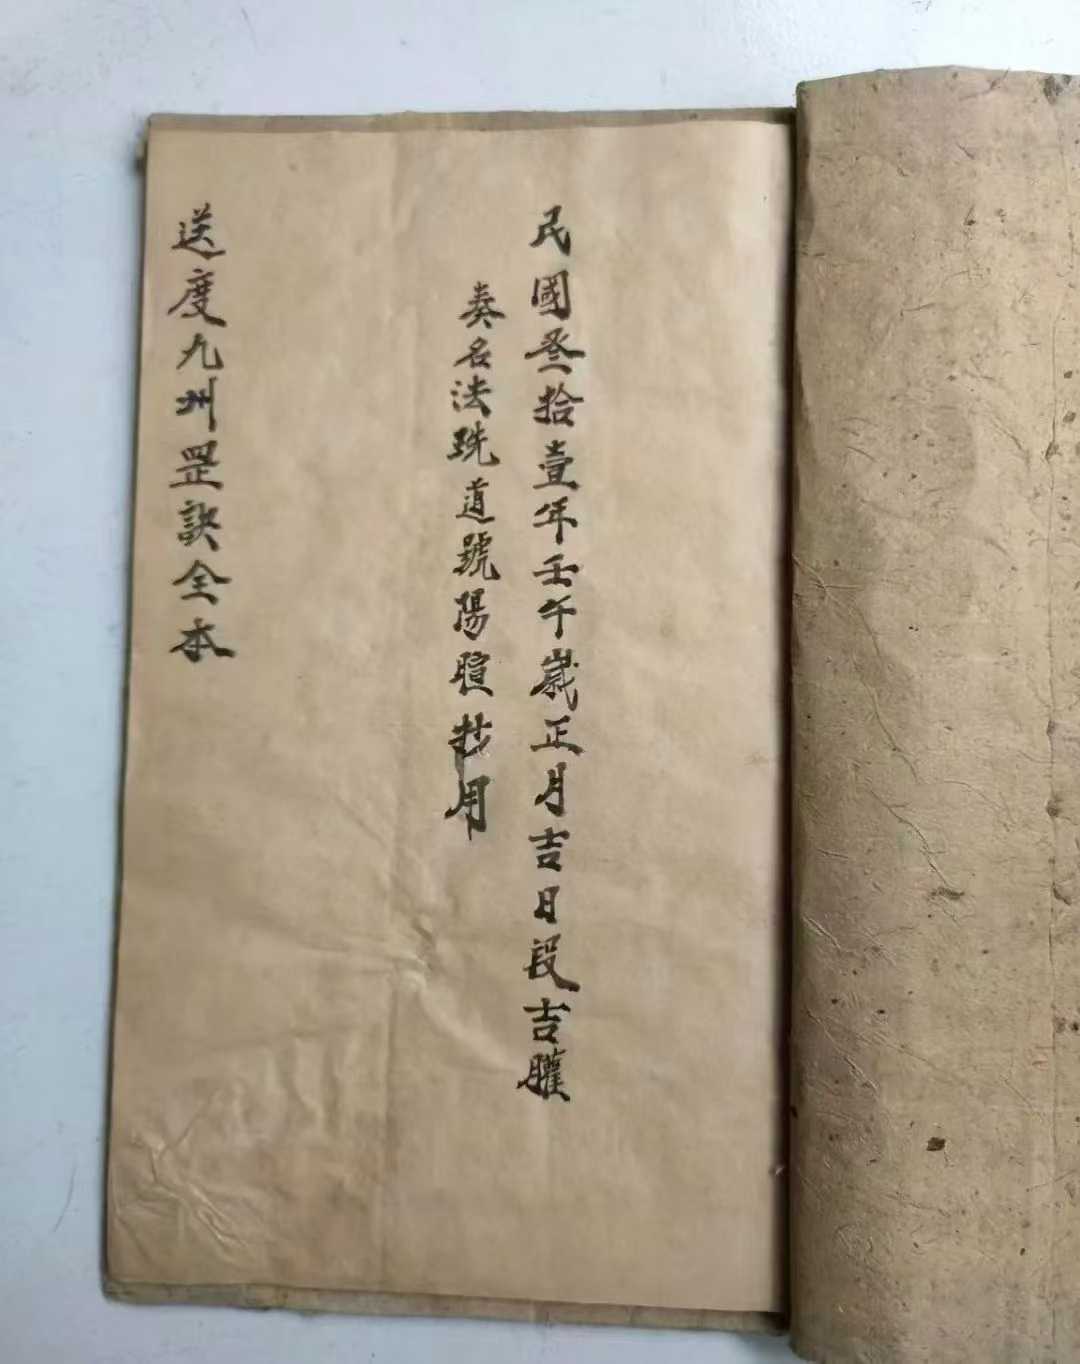 民國叄拾壹年壬午歲正月吉日段吉臛
奏名法珗道號陽暄抄用
送度九州罡訣全本